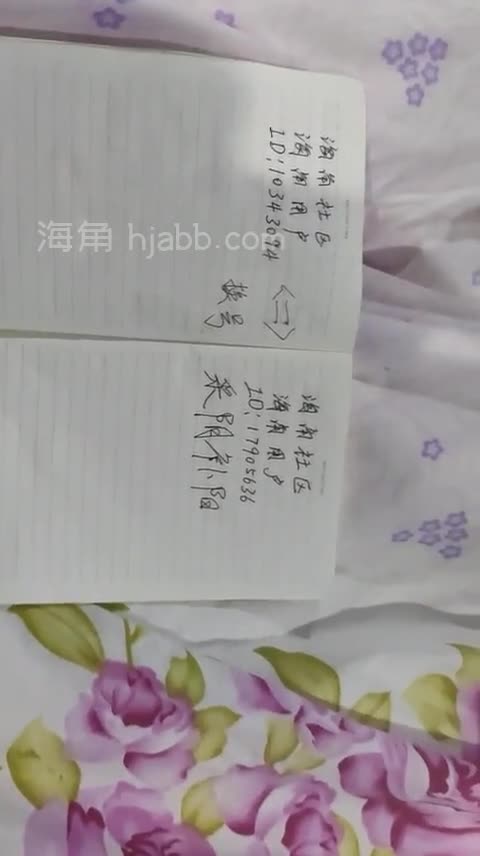 海角社区
海角用户
ID:10343094
<二>
换号
海角社区
海角用户
ID:17905636
采阴补阳
海角 hjabb.com